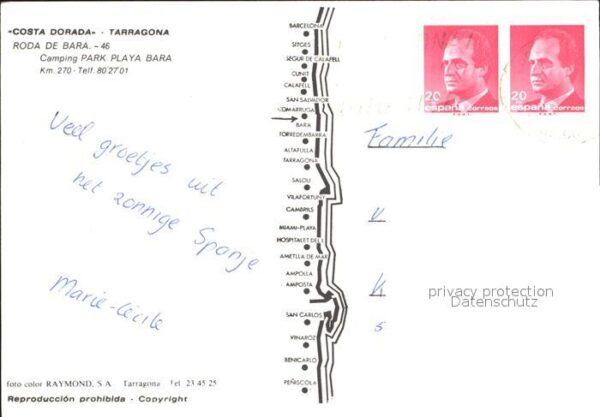 «COSTA DORADA» - TARRAGONA
RODA DE BARA. - 46
Camping PARK PLAYA BARA
Km. 270 - Telf. 80 27 01
Veel groetjes uit
het zonnige Spanje
Marie-Cécile
foto color RAYMOND, S A Tarragona Tel 23 45 25
Reproducción prohibida - Copyright
BARCELONA
SITGES
SEGUR DE CALAFELL
CUNIT
CALAFELL
SAN SALVADOR
COMARRUGA
BARA
TORREDEMBARRA
ALTAFULLA
TARRAGONA
SALOU
VILAFORTUNY
CAMBRILS
MIAMI-PLAYA
HOSPITALET DEL E.
AMETLLA DE MAR
AMPOLLA
AMPOSTA
SAN CARLOS
VINAROZ
BENICARLO
PEÑISCOLA
20
españa correos
20
españa correos
Familie
V
K
s
privacy protection
Datenschutz